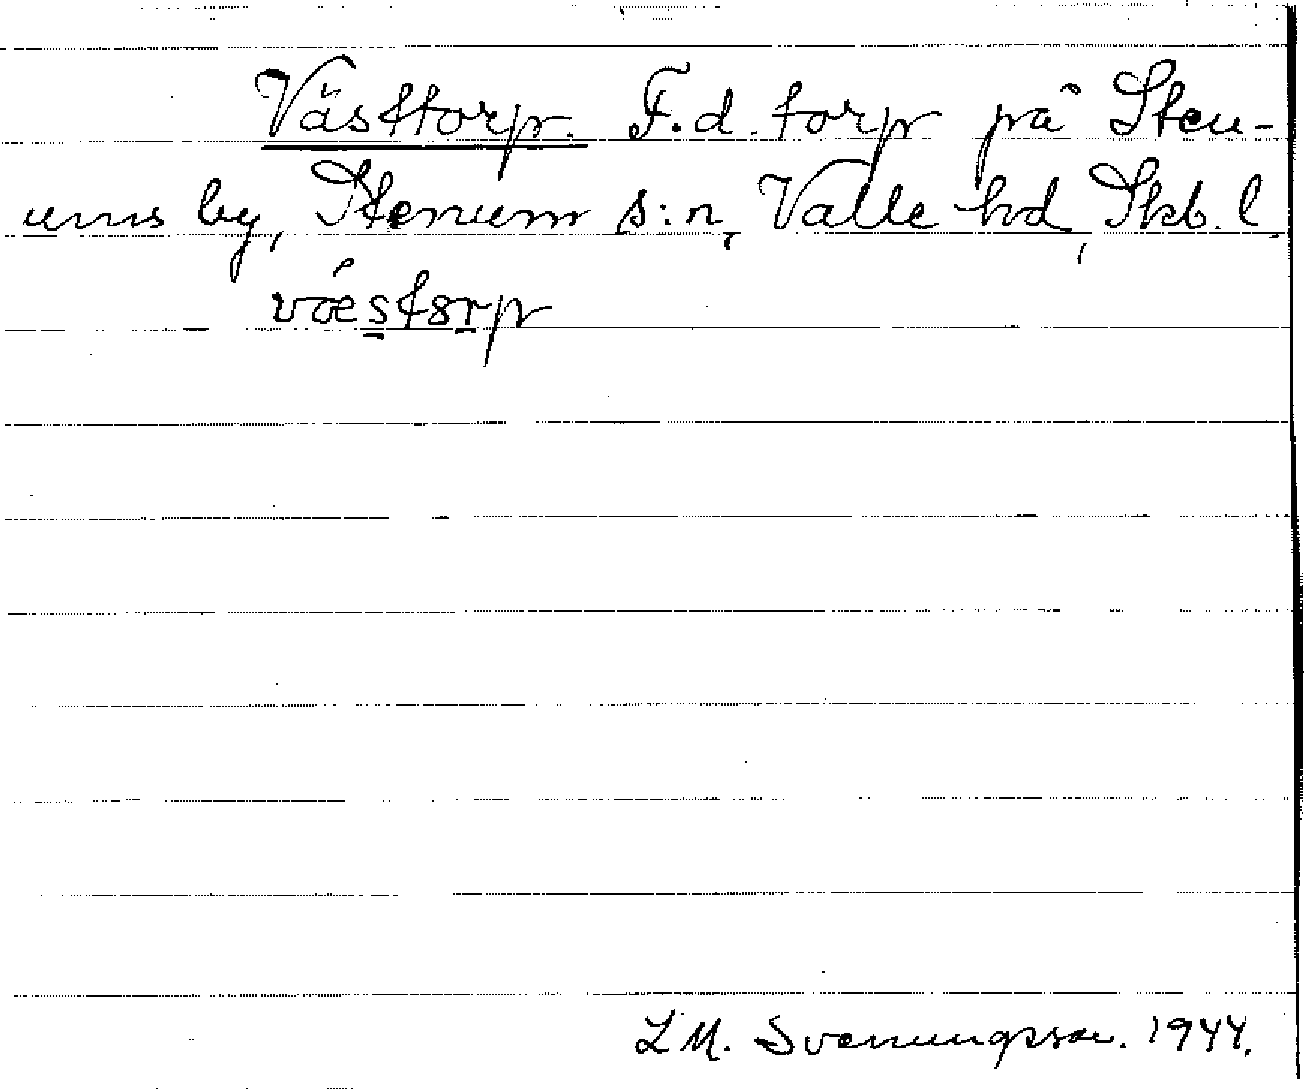 Västtorp. F.d. torp på Sten-
ums by, Stenum s:n, Valle hd, Skb. l.
vǽstorp
L M. Svenungsson. 1944.